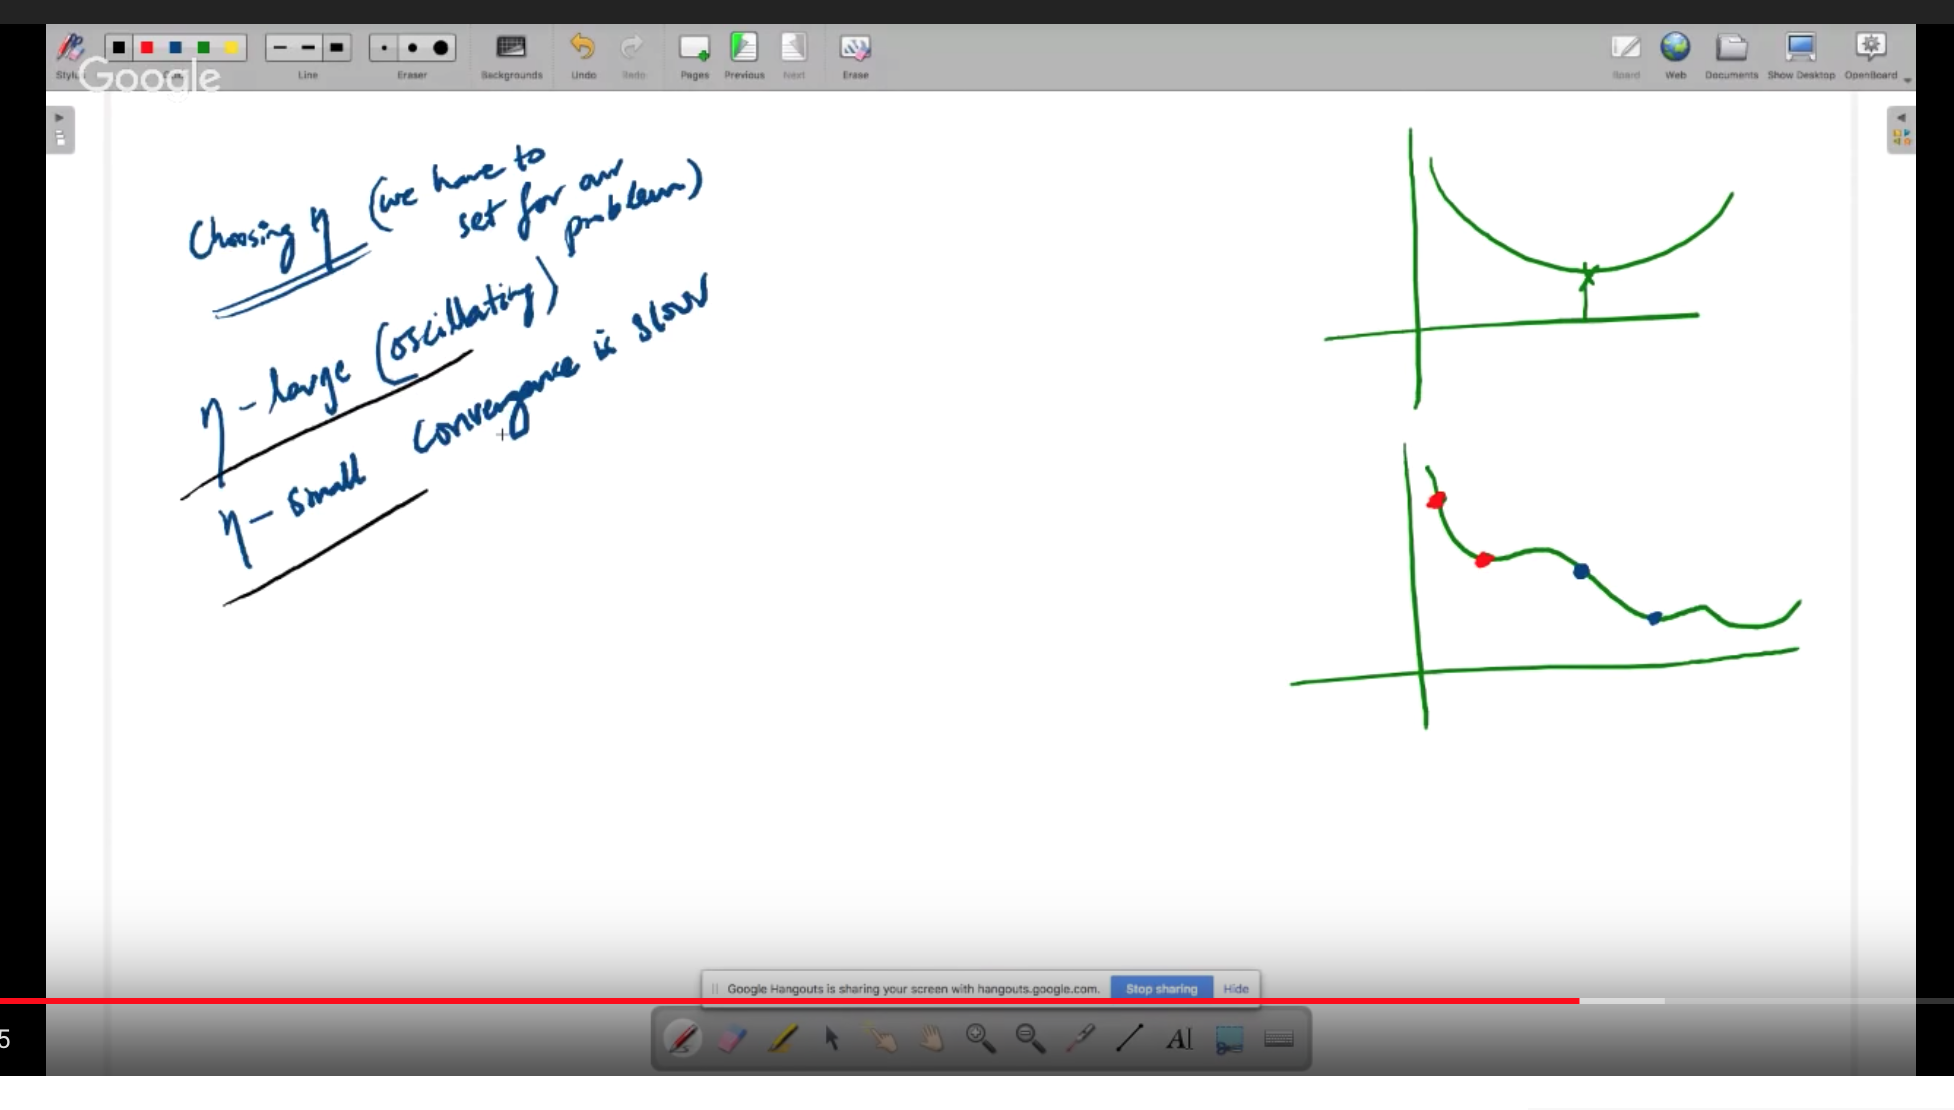 Google
Stylus
Line
Eraser
Backgrounds
Undo
Redo
Pages
Previous
Next
Erase
Board
Web
Documents
Show Desktop
OpenBoard
Choosing η (we have to
set for our
problem)
η - large (oscillating)
η - small convergance is slow
Google Hangouts is sharing your screen with hangouts.google.com.
Stop sharing
Hide
5
AI